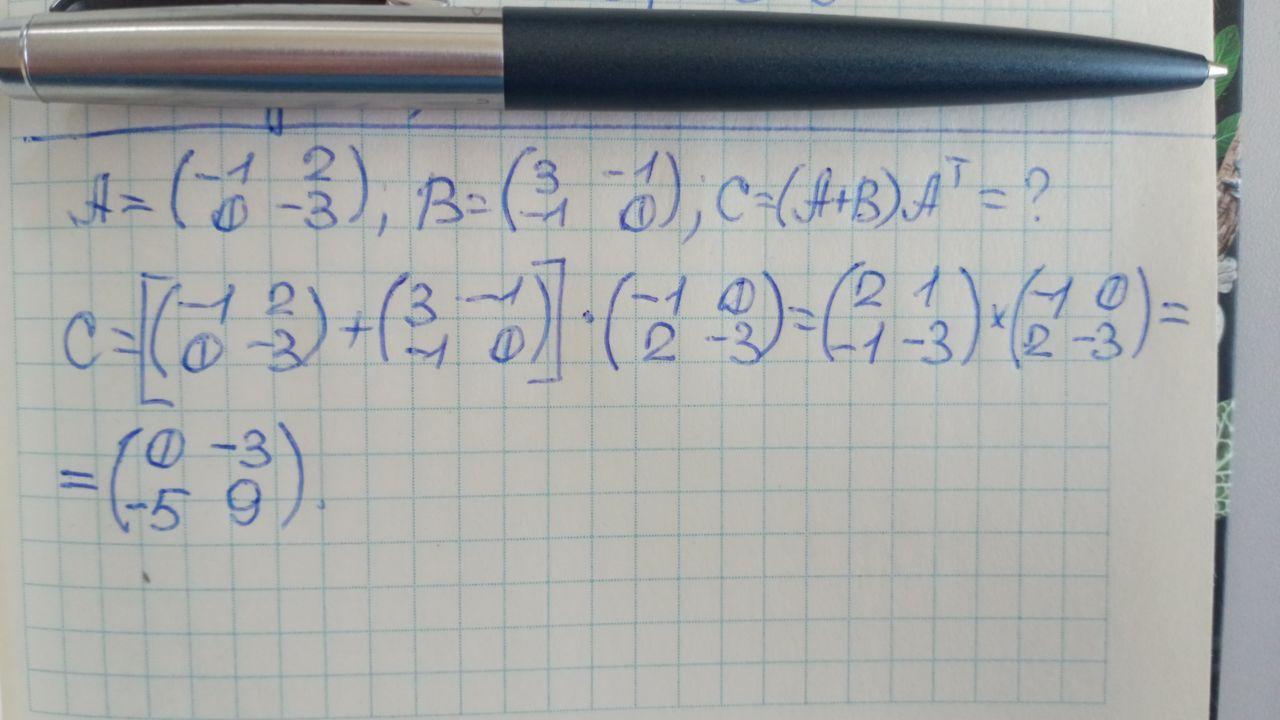 A = (-1 2 0 -3); B = (3 -1 -1 0); C = (A+B)Aᵀ = ?
C = [(-1 2 0 -3) + (3 -1 -1 0)] · (-1 0 2 -3) = (2 1 -1 -3) × (-1 0 2 -3) =
= (0 -3 -5 9).